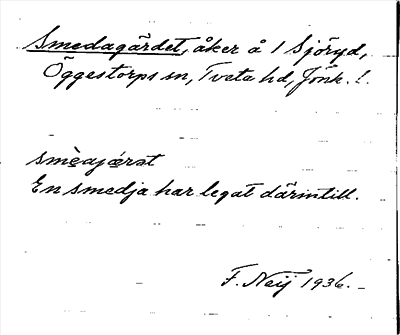 Smedagärdet, åker å 1 Sjöryd,
Öggestorps sn, Tveta hd, Jönk. l.
smèajǽrət
En smedja har legat därintill.
F. Neij 1936.